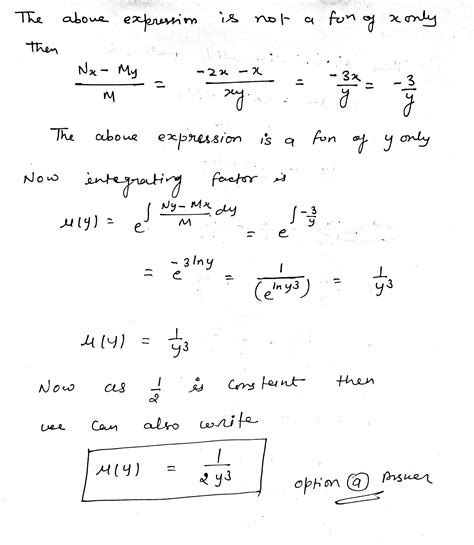 The above expression is not a fun of x only
then
Nx - My / M = -2x - x / xy = -3x / y = -3 / y
The above expression is a fun of y only
Now integrating factor is
μ(y) = e^∫ Ny - Mx / M dy = e^∫ -3/y
= e^-3lny = 1 / (e^lny3) = 1 / y3
μ(y) = 1 / y3
Now as 1/2 is constant then
we can also write
μ(y) = 1 / 2y3
option ⓐ Answer